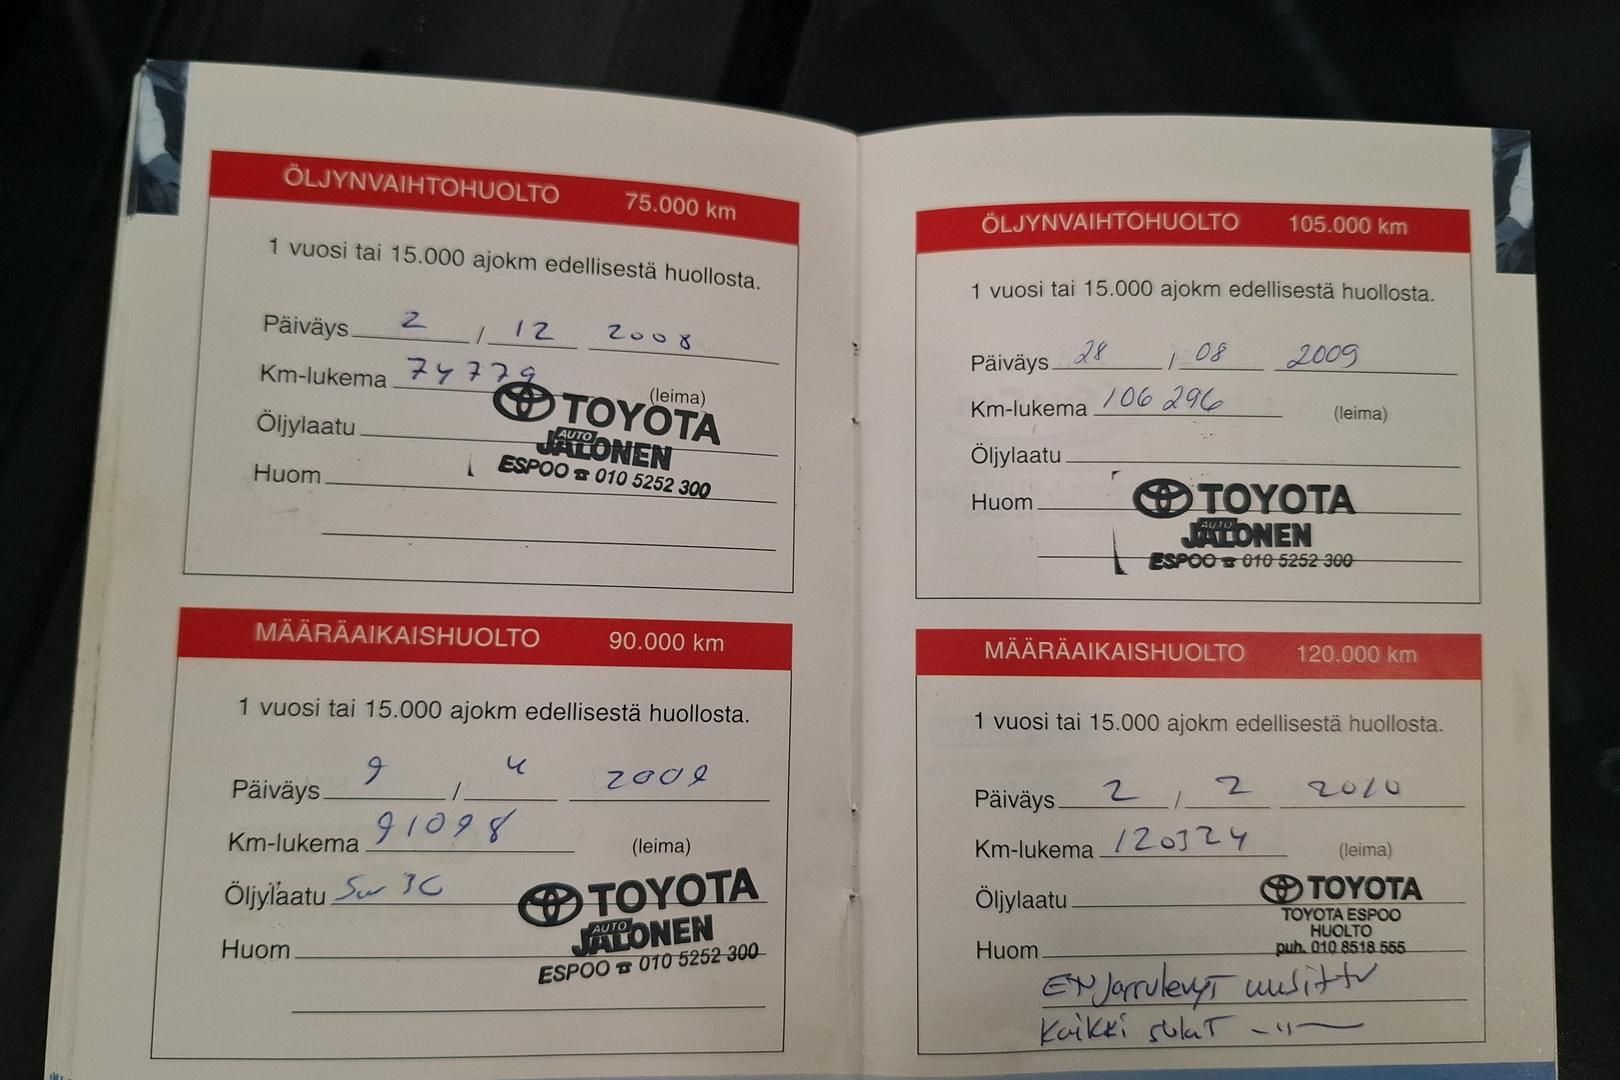 ÖLJYNVAIHTOHUOLTO 75.000 km
1 vuosi tai 15.000 ajokm edellisestä huollosta.
Päiväys 2 / 12 2008
Km-lukema 74779
(leima)
TOYOTA
Öljylaatu
AUTO
JALONEN
Huom
ESPOO ☎ 010 5252 300
MÄÄRÄAIKAISHUOLTO 90.000 km
1 vuosi tai 15.000 ajokm edellisestä huollosta.
Päiväys 9 / 4 2009
Km-lukema 91098 (leima)
Öljylaatu
TOYOTA
AUTO
JALONEN
Huom
ESPOO ☎ 010 5252 300
ÖLJYNVAIHTOHUOLTO 105.000 km
1 vuosi tai 15.000 ajokm edellisestä huollosta.
Päiväys 28 / 08 2009
Km-lukema 106 296 (leima)
Öljylaatu
Huom
TOYOTA
AUTO
JALONEN
ESPOO ☎ 010 5252 300
MÄÄRÄAIKAISHUOLTO 120.000 km
1 vuosi tai 15.000 ajokm edellisestä huollosta.
Päiväys 2 / 2 2010
Km-lukema 120324 (leima)
Öljylaatu
TOYOTA
TOYOTA ESPOO
HUOLTO
Huom
puh. 010 8518 555
Etu Jarrulevyt uusittu
Kaikki sulat -"-